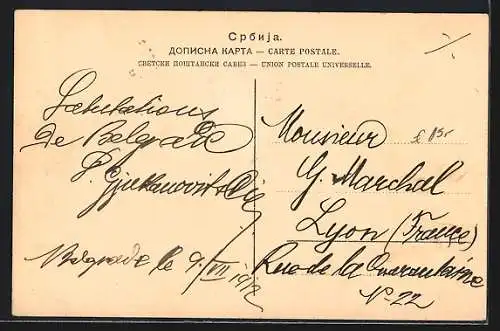 Србија.
ДОПИСНА КАРТА — CARTE POSTALE.
СВЕТСКИ ПОШТАНСКИ САВЕЗ — UNION POSTALE UNIVERSELLE.
Salutations
de Belgrade
P.
Belgrade le 9/VII 1912
Monsieur
G. Marchal
Lyon (France)
Rue de la Quarantaine
No 22